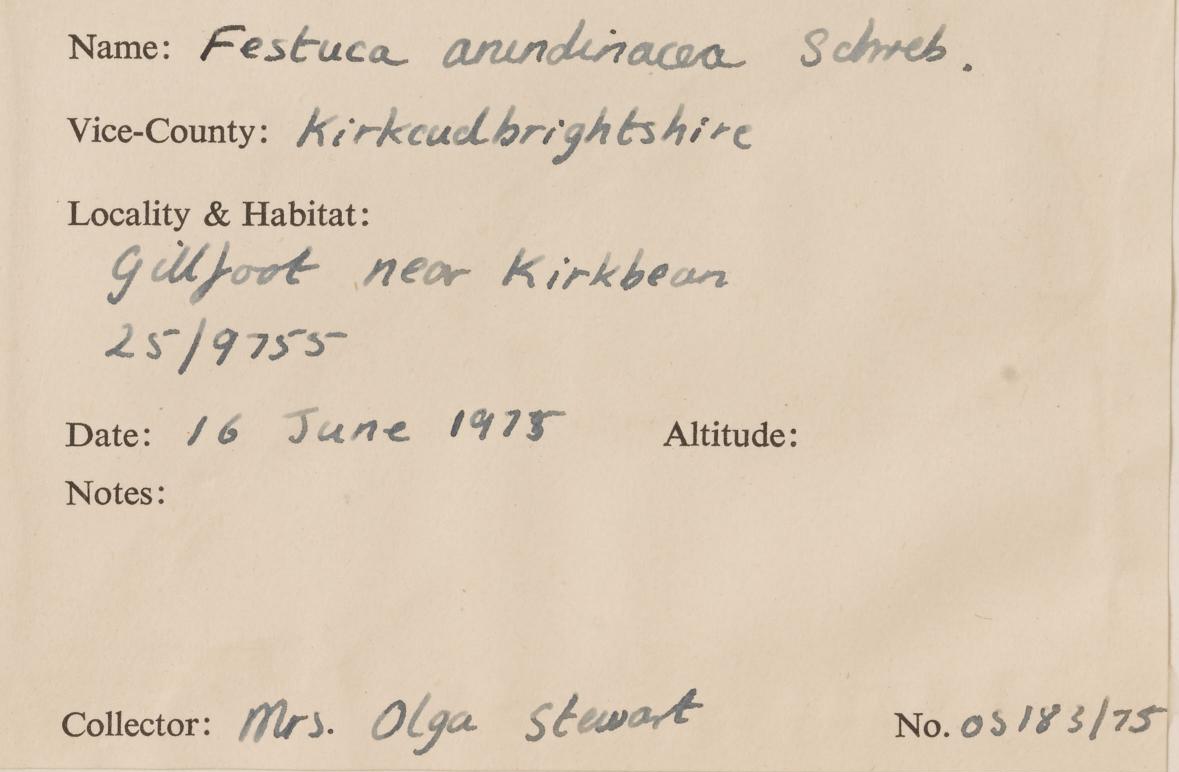 Name: Festuca arundinacea Schreb.
Vice-County: Kirkcudbrightshire
Locality & Habitat:
Gillfoot near Kirkbean
25/9755
Date: 16 June 1975 Altitude:
Notes:
Collector: Mrs. Olga Stewart No. OS183/75